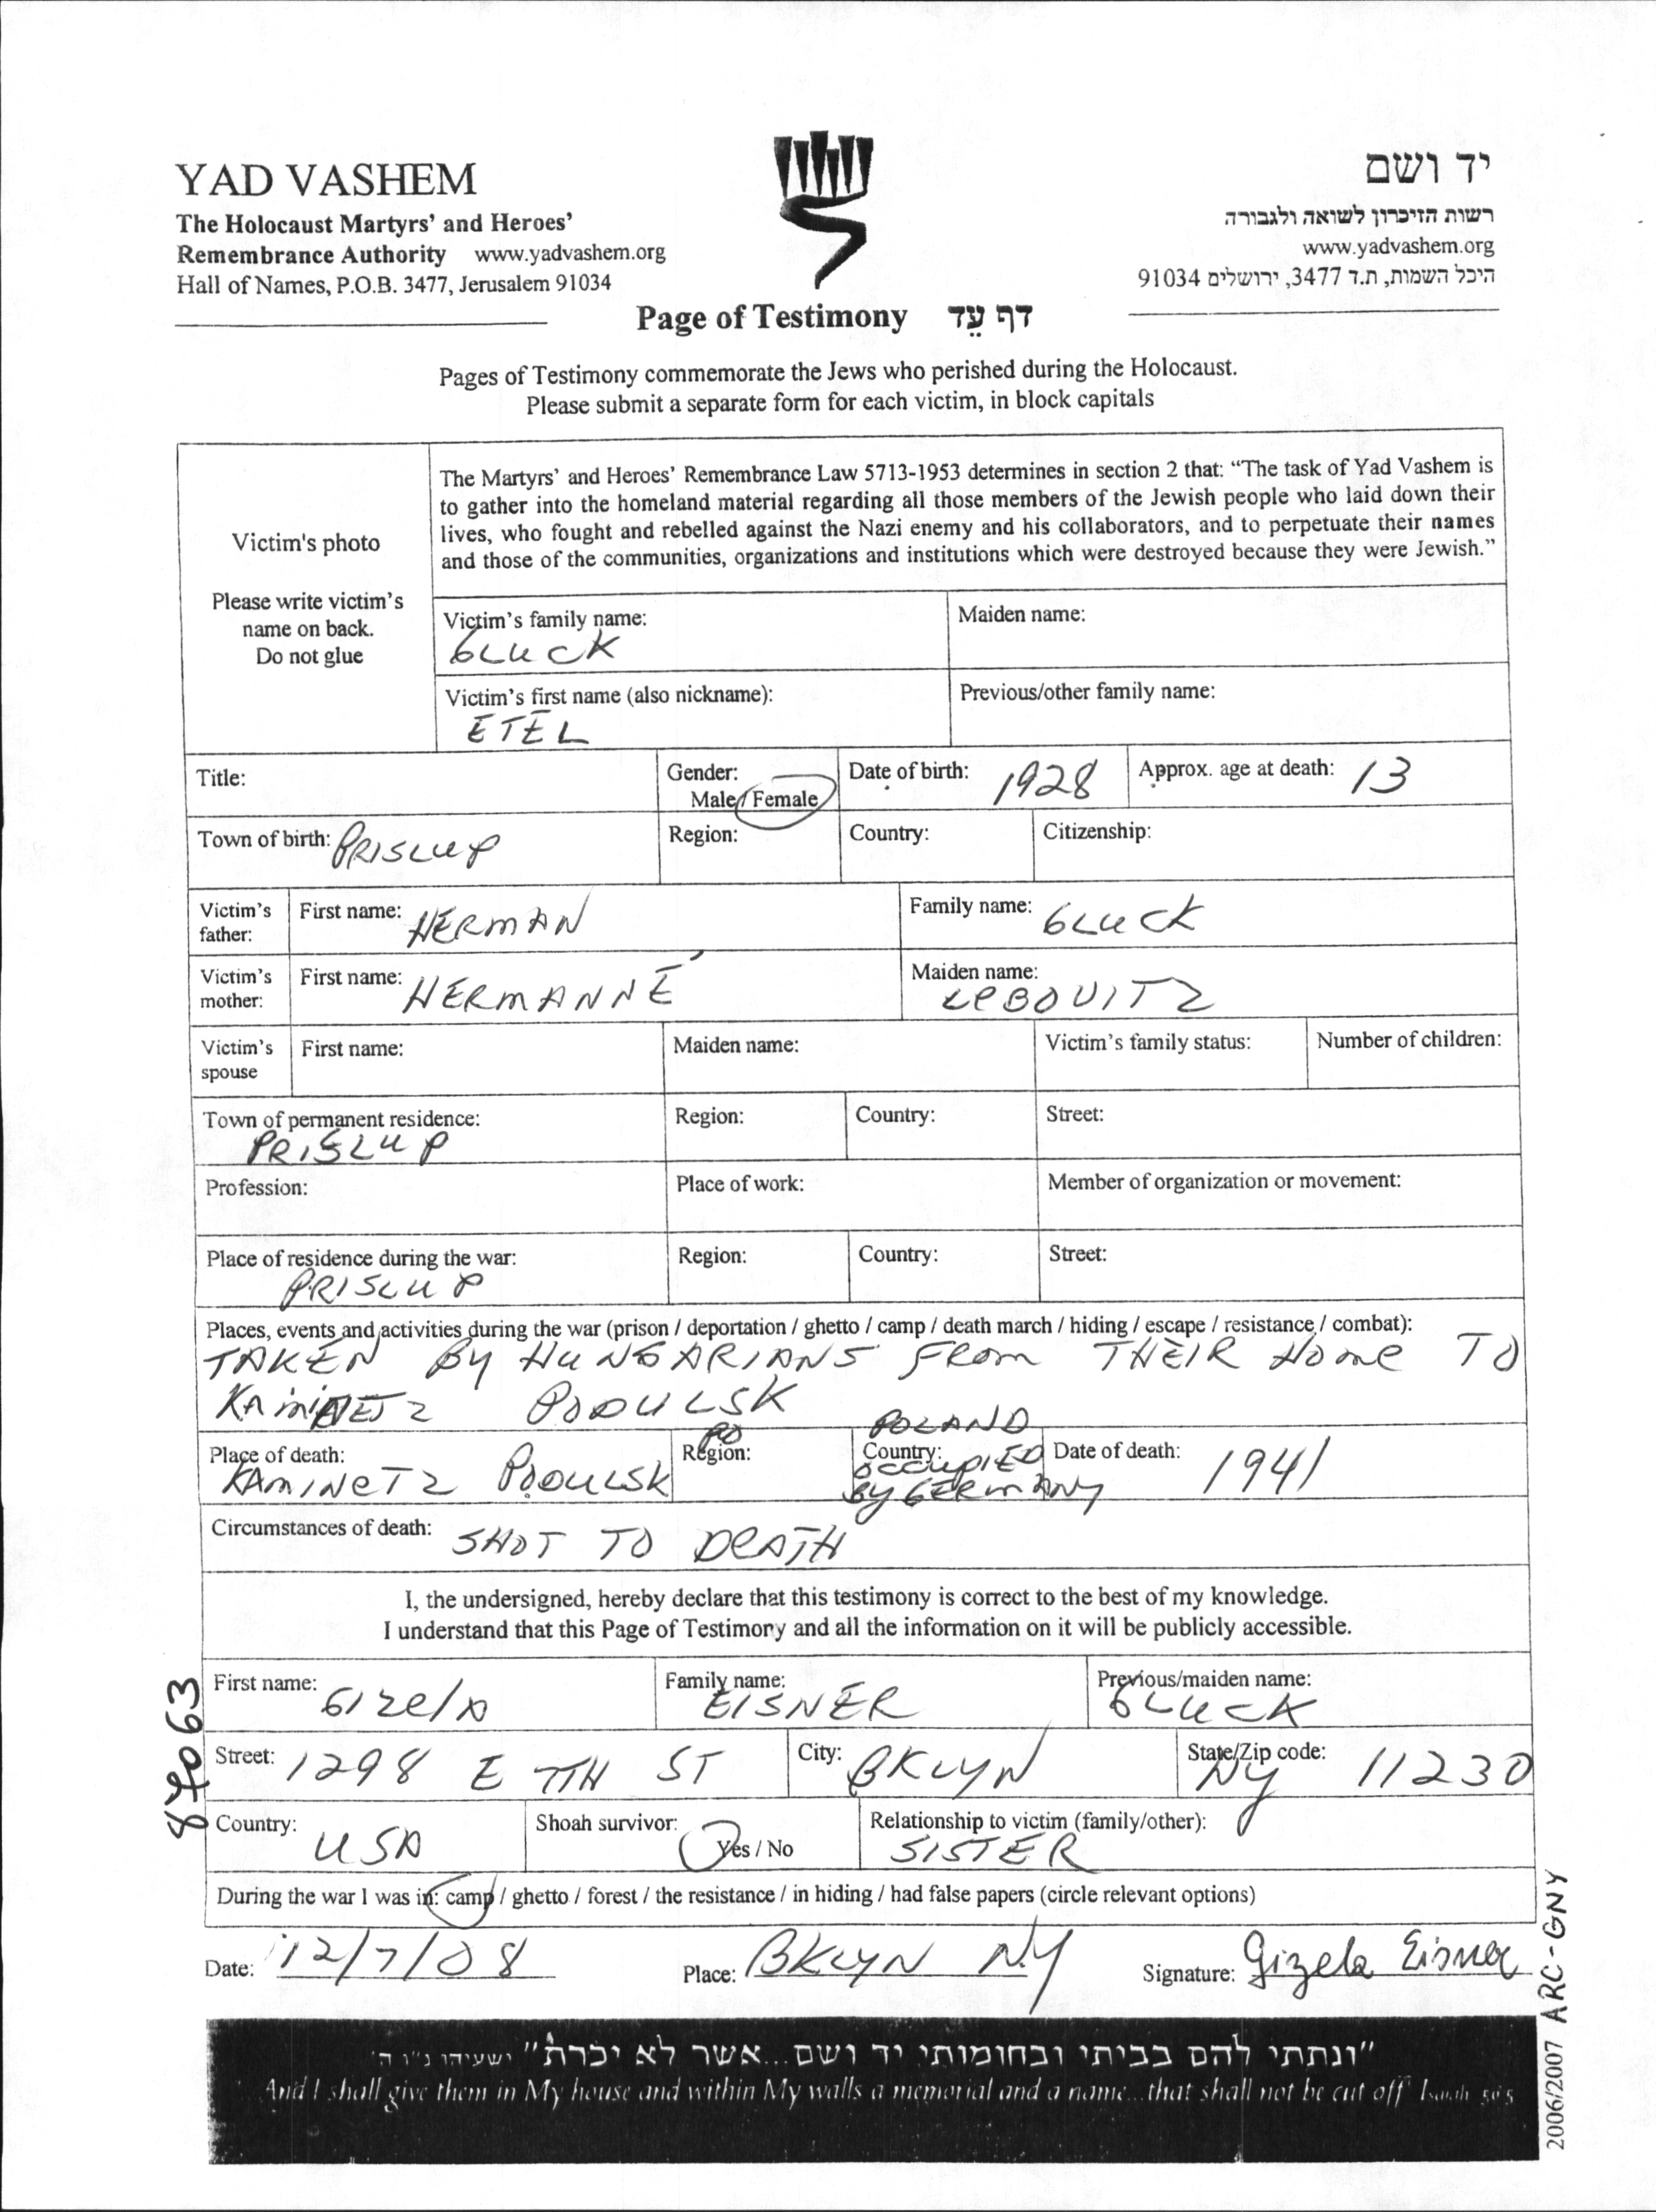 YAD VASHEM
The Holocaust Martyrs' and Heroes'
Remembrance Authority www.yadvashem.org
Hall of Names, P.O.B. 3477, Jerusalem 91034
יד ושם
רשות הזיכרון לשואה ולגבורה
www.yadvashem.org
היכל השמות, ת.ד 3477, ירושלים 91034
Page of Testimony דף עֵד
Pages of Testimony commemorate the Jews who perished during the Holocaust.
Please submit a separate form for each victim, in block capitals
Victim's photo
Please write victim's
name on back.
Do not glue
The Martyrs' and Heroes' Remembrance Law 5713-1953 determines in section 2 that: "The task of Yad Vashem is
to gather into the homeland material regarding all those members of the Jewish people who laid down their
lives, who fought and rebelled against the Nazi enemy and his collaborators, and to perpetuate their names
and those of the communities, organizations and institutions which were destroyed because they were Jewish."
Victim's family name: Maiden name:
GLUCK
Victim's first name (also nickname): Previous/other family name:
ETEL
Title: Gender: Male / Female Date of birth: 1928 Approx. age at death: 13
Town of birth: PRISLUP Region: Country: Citizenship:
Victim's father: First name: HERMAN Family name: GLUCK
Victim's mother: First name: HERMANNÉ Maiden name: LEBOVITZ
Victim's spouse First name: Maiden name: Victim's family status: Number of children:
Town of permanent residence: Region: Country: Street:
PRISLUP
Profession: Place of work: Member of organization or movement:
Place of residence during the war: Region: Country: Street:
PRISLUP
Places, events and activities during the war (prison / deportation / ghetto / camp / death march / hiding / escape / resistance / combat):
TAKEN BY HUNGARIANS FROM THEIR HOME TO
KAMINETZ PODULSK
Place of death: KAMINETZ PODULSK Region: PO Country: POLAND OCCUPIED BY GERMANY Date of death: 1941
Circumstances of death: SHOT TO DEATH
I, the undersigned, hereby declare that this testimony is correct to the best of my knowledge.
I understand that this Page of Testimony and all the information on it will be publicly accessible.
First name: Gizela Family name: EISNER Previous/maiden name: GLUCK
Street: 1298 E 7TH ST City: BKLYN State/Zip code: NY 11230
Country: USA Shoah survivor: Yes / No Relationship to victim (family/other): SISTER
During the war I was in: camp / ghetto / forest / the resistance / in hiding / had false papers (circle relevant options)
Date: 12/7/08 Place: BKLYN NY Signature: Gizela Eisner
"ונתתי להם בביתי ובחומותי יד ושם...אשר לא יכרת" ישעיהו נ"ו ה'
And I shall give them in My house and within My walls a memorial and a name...that shall not be cut off Isaiah 56:5
2006/2007 ARC-GNY